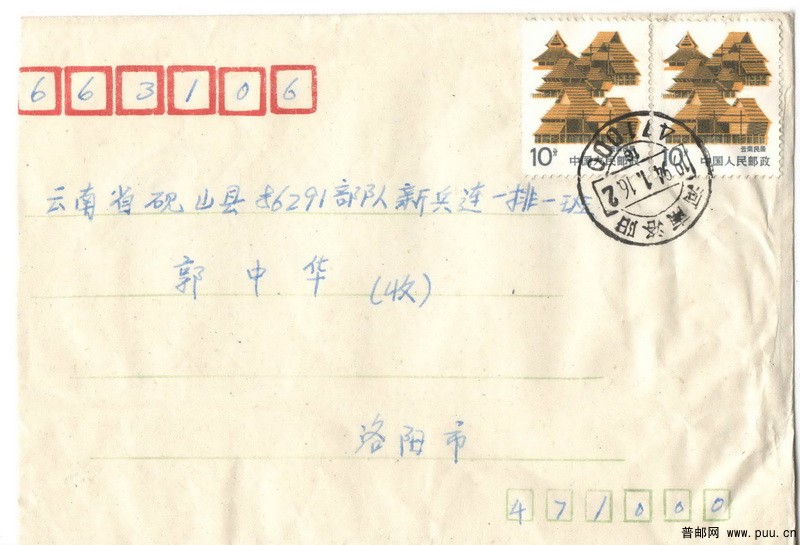 663106
10分
中国人民邮政
云南民居
10分
中国人民邮政
471000
94.1.16
2
河南洛阳
云南省砚山县86291部队新兵连一排一班
郭中华(收)
洛阳市
471000
普邮网 www.puu.cn